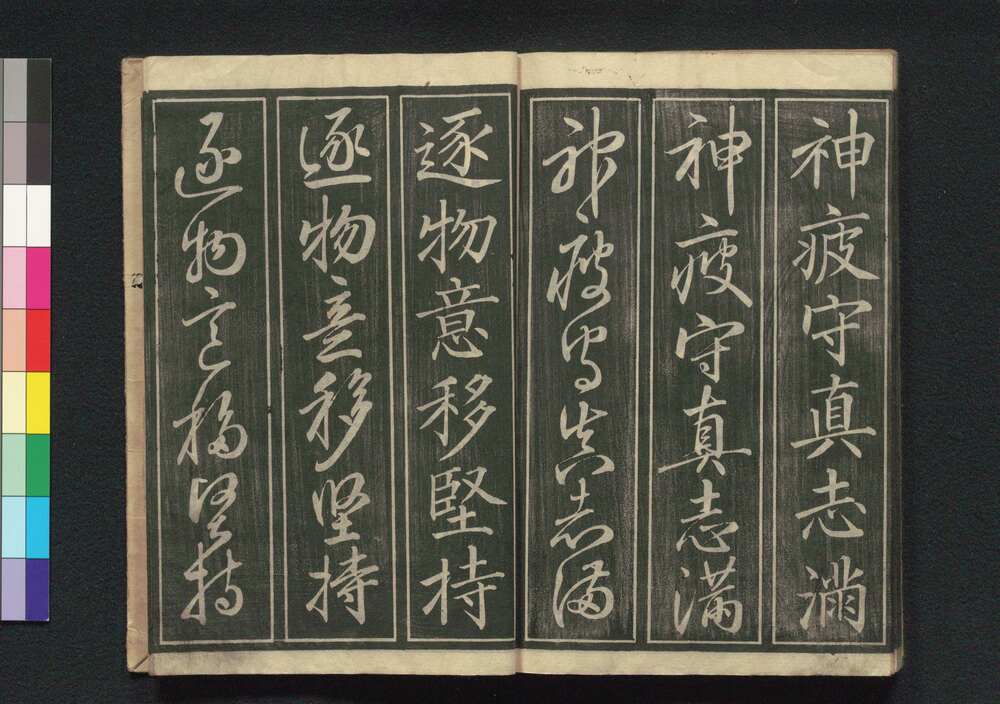 神疲守真志満
神疲守真志満
神疲守真志満
逐物意移堅持
逐物意移堅持
逐物意移堅持